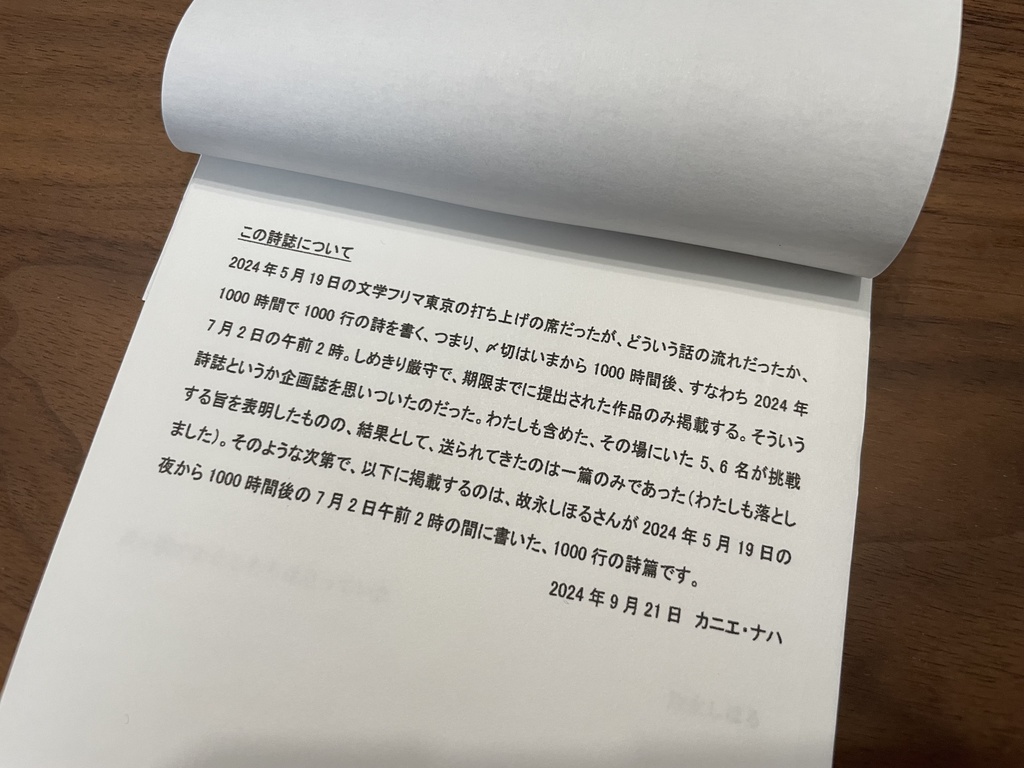 この詩誌について
2024年5月19日の文学フリマ東京の打ち上げの席だったが、どういう話の流れだったか、
1000時間で1000行の詩を書く、つまり、〆切はいまから1000時間後、すなわち2024年
7月2日の午前2時。しめきり厳守で、期限までに提出された作品のみ掲載する。そういう
詩誌というか企画誌を思いついたのだった。わたしも含めた、その場にいた5、6名が挑戦
する旨を表明したものの、結果として、送られてきたのは一篇のみであった(わたしも落とし
ました)。そのような次第で、以下に掲載するのは、故永しほるさんが2024年5月19日の
夜から1000時間後の7月2日午前2時の間に書いた、1000行の詩篇です。
2024年9月21日 カニエ・ナハ